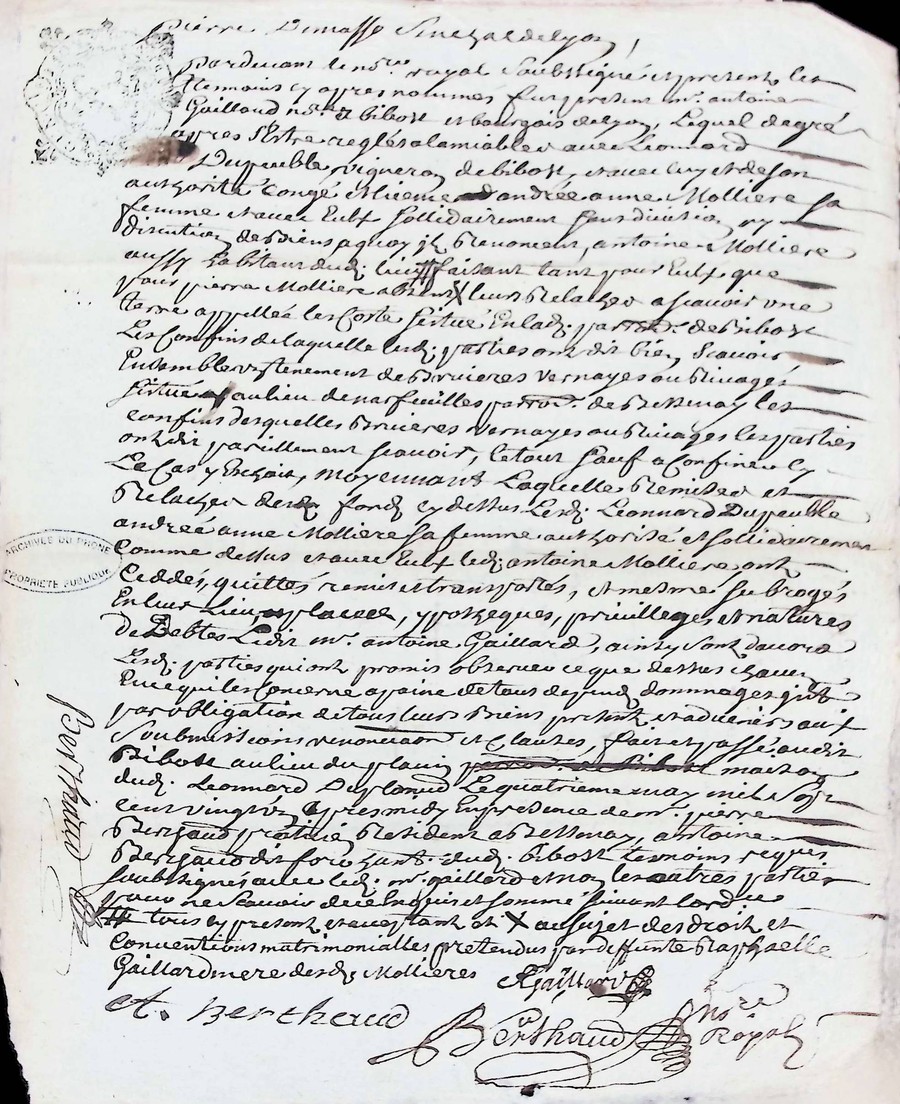 Pierre Demasso Senezal de lyon,
pardevant le no.re royal soubsigné et present les
temoins cy apres nommés fut present m.r antoine
Gaillard no.re de bibost et bourgeois de lyon, Lequel de gré
apres s'estre reglés a lamiable avec Leonnard
Dupeuble vigneron de bibost, et avec luy et de son
authorité congé et licence d'andrée anne Mollière sa
femme et avec Eulx sollidairement sans division ny
discution de biens a quoy ils Renoncent, antoine Mollière
aussy habitant dud. lieu # faisant tant pour Eulx que
pour pierre Mollière absent X leurs Relaches a scavoir une
terre appellée les Coste scitué En lad. parr.sse de Bibost
Les Confins de laquelle lesd. parties ont dit bien scavoir
Ensemble un tenement de Brivieres vernayes ou Rivages
scitué au lieu de parroi. de Bessenay les
confins desquelles Brivieres vernayes ou Rivages les parties
ont dit pareillement scavoir, le tout sauf a Confiner sy
Le Cas y Echoit, moyennant Laquelle Remises et
Relaches desd. fonds cy dessus Lesd. Leonnard Dupeuble
andrée anne Mollière sa femme authorisée et sollidairement
comme dessus et avec Eulx led. antoine Mollière ont
Ceddés, quittés remis et transportés, et mesme subrogés
En leur Lieu, places, ypotheques, privilleges et natures
de Debtes Ledit m.r antoine Gaillard, ainsy sont d'accord
Lesd. parties qui ont promis observer ce que dessus chacun
En ce qui les Concerne a paine de tous despends dommages
par obligation de tous leurs biens present et advenirs aux
soubmissions renonciation et Clauses, fait et passé audit
Bibost au lieu du plain maison
dud. Leonnard Dupeuble Le quatrieme may mil sept
cent vingt apres midy En presence de m.r pierre
Berthaud praticien Resident a Bessenay, antoine
Berthaud dit dud. bibost temoins requis
soubsignés avec led. m.r gaillard et non les autres parties
pour ne scavoir de ce Enquis et sommé suivant lord.ce
# tous cy present et acceptant et X au sujet des droit et
Conventions matrimonialles pretendus par deffunte Raphaelle
Gaillard mere desd. Mollières
AGaillard
A. Berthaud
Berthaud no.re Royal
Berthaud
ARCHIVES DU RHONE
PROPRIETE PUBLIQUE